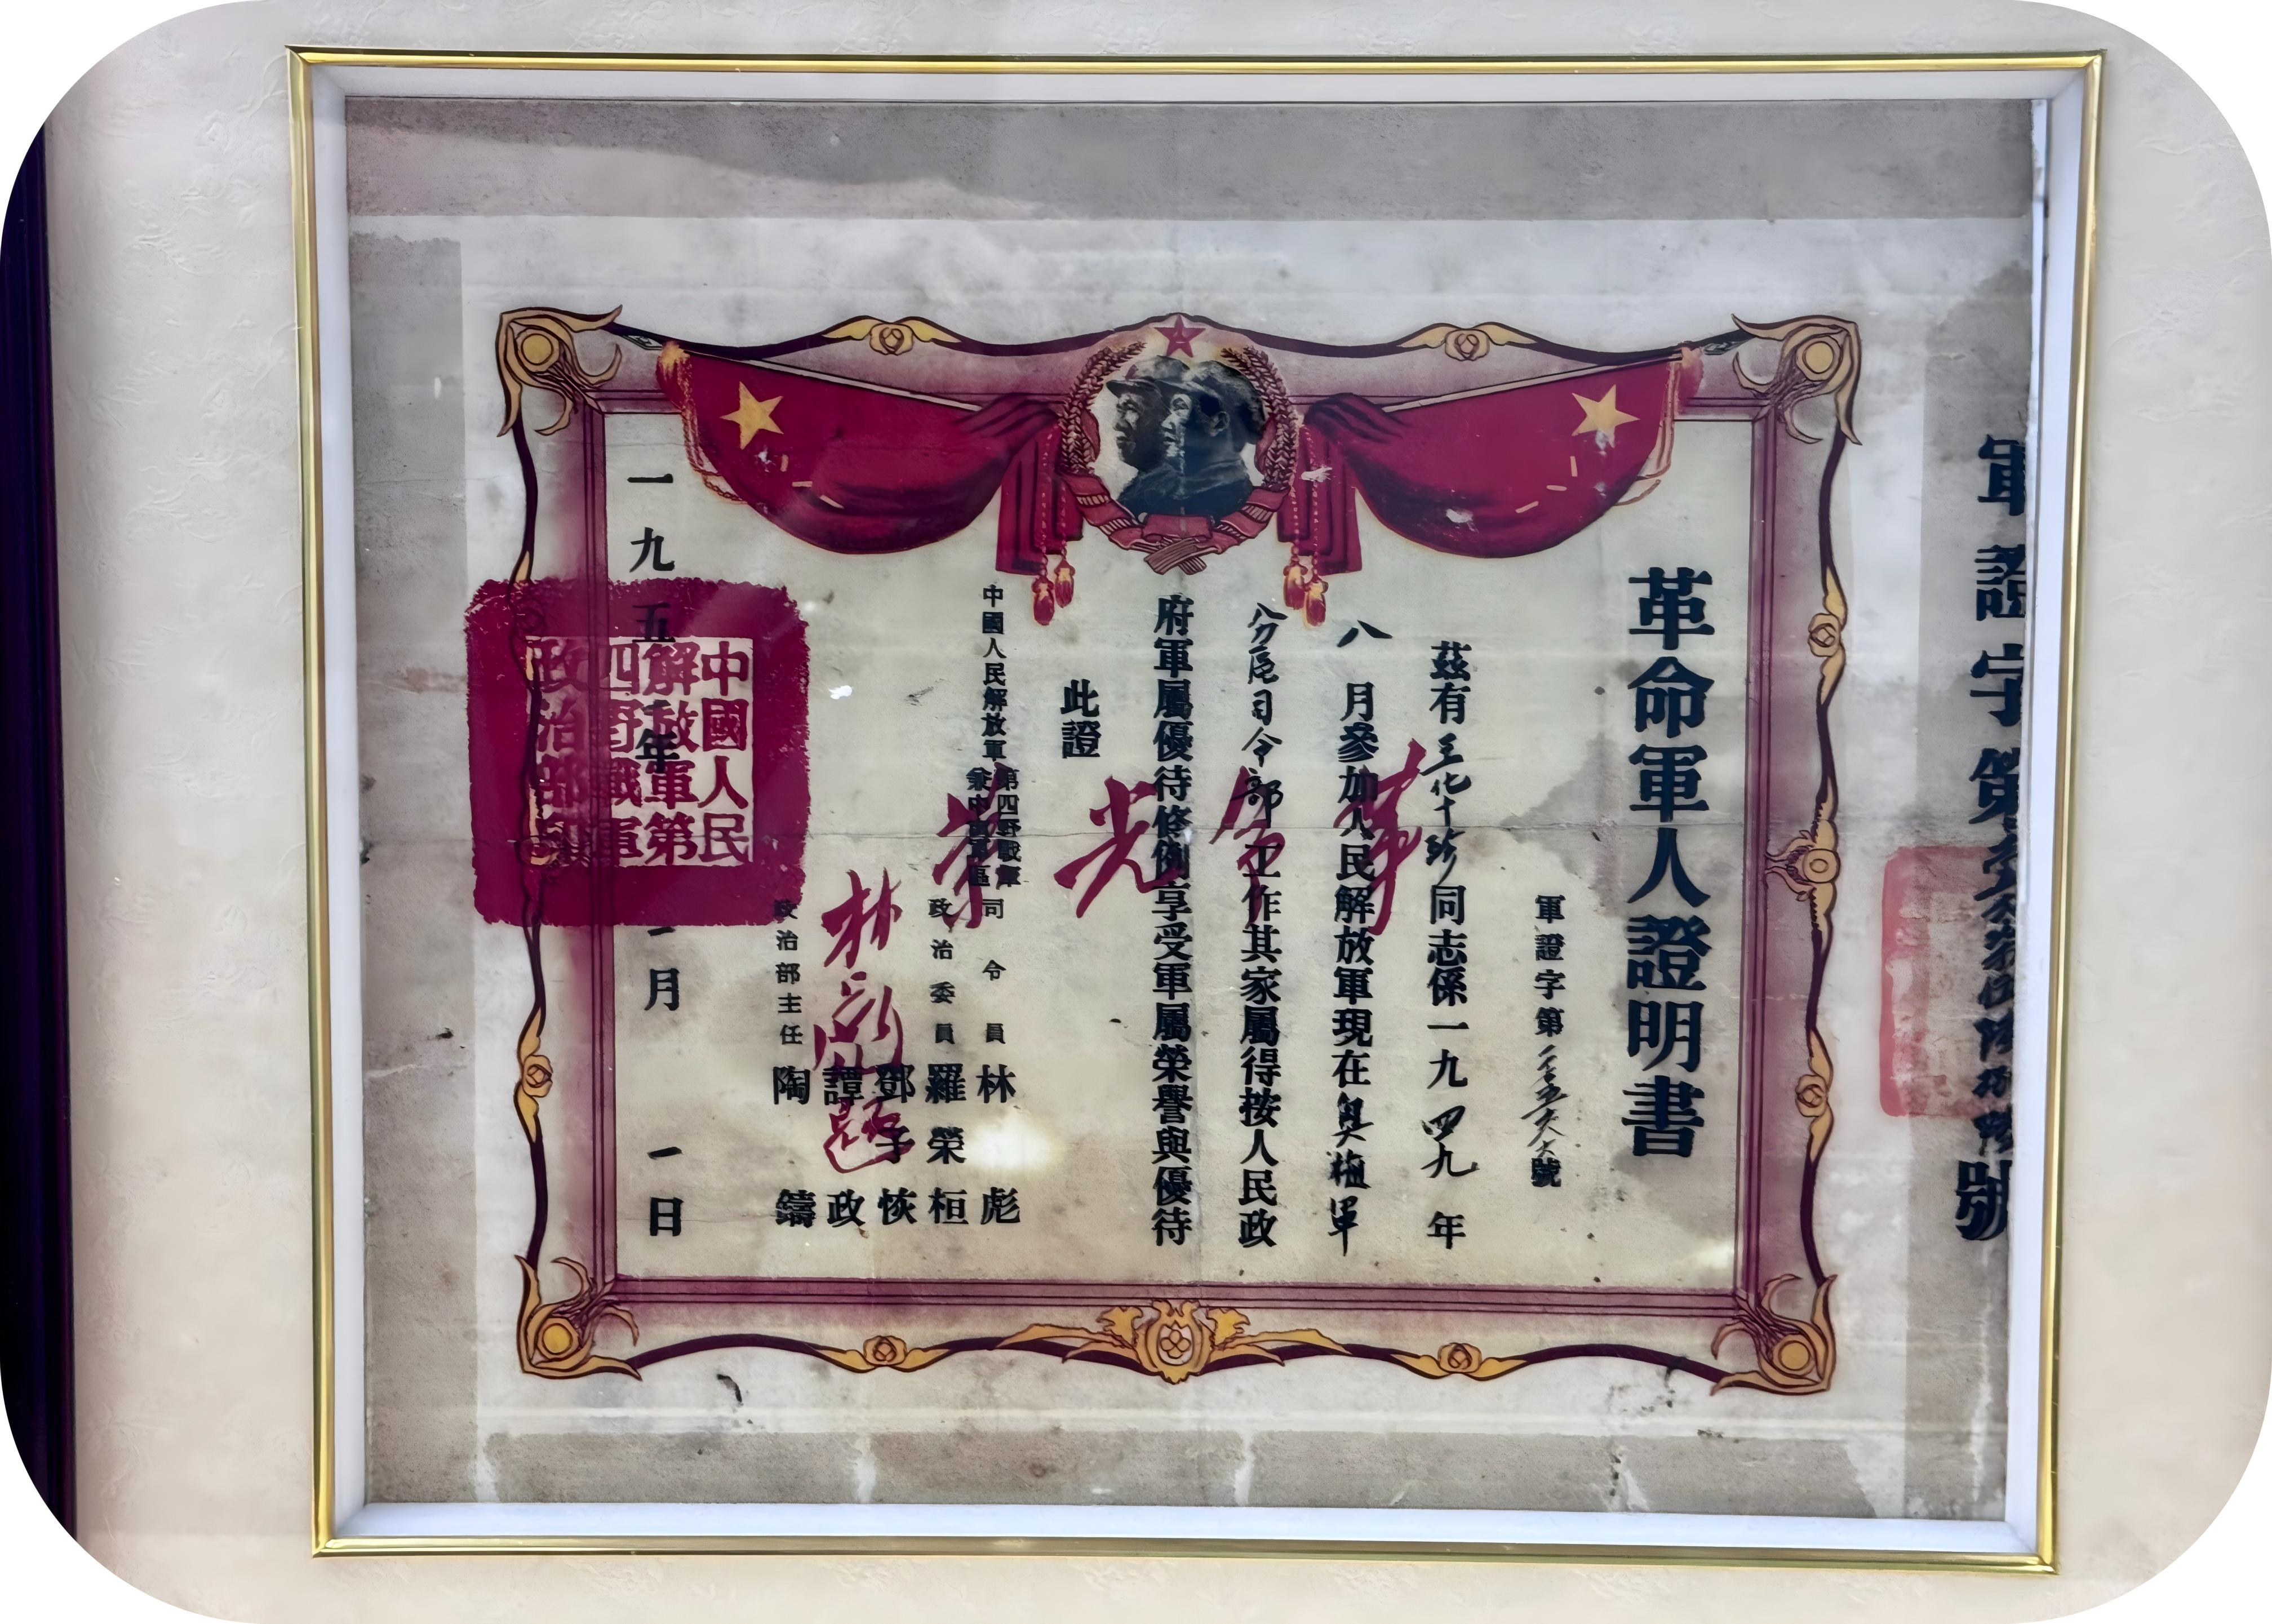 軍證字第
號
革命軍人證明書
軍證字第
號
茲有
同志係一九四九年
八月參加人民解放軍現在
軍
分區司令部工作其家屬得按人民政
府軍屬優待條例享受軍屬榮譽與優待
此證
革命光榮
中國人民解放軍第四野戰軍
兼中南軍區
司令員林彪
政治委員羅榮桓
鄧子恢
譚政
政治部主任陶鑄
林彪題
一九五一年一月一日
中國人民
解放軍第
四野戰軍
政治部印